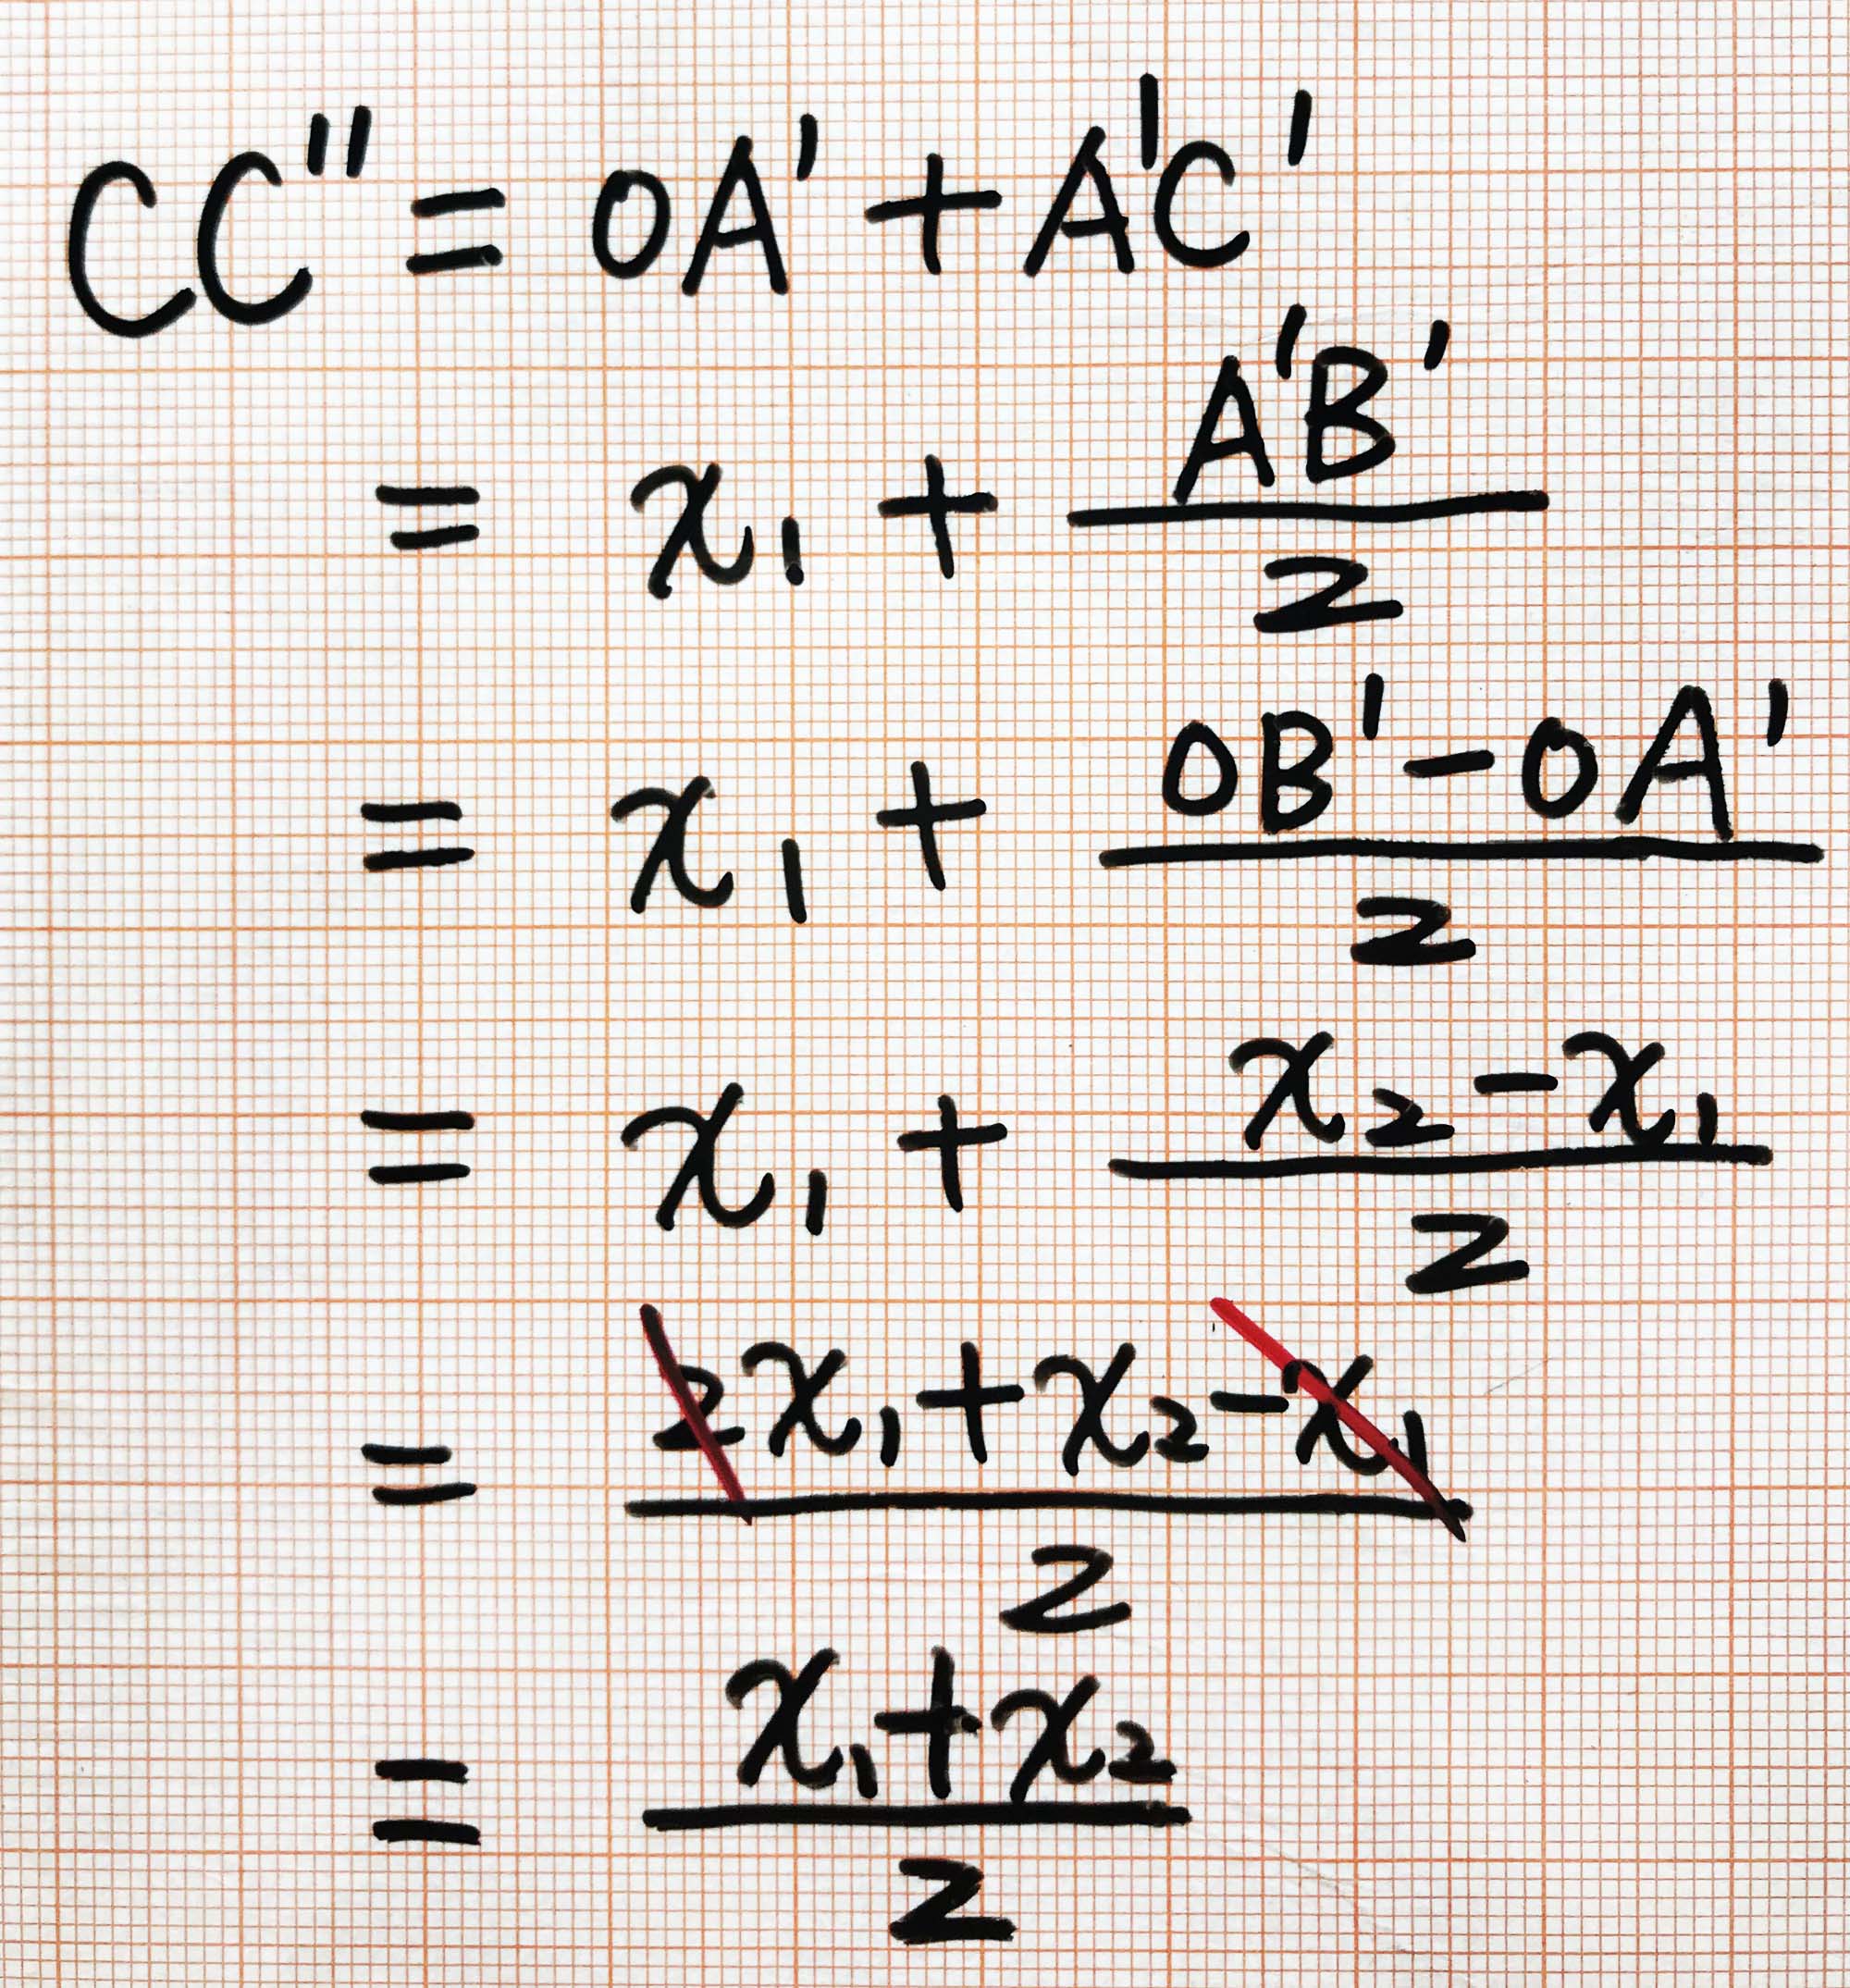 CC" = OA' + A'C'
= x₁ + A'B'/2
= x₁ + (OB' - OA')/2
= x₁ + (x₂ - x₁)/2
= (2x₁ + x₂ - x₁)/2
= (x₁ + x₂)/2